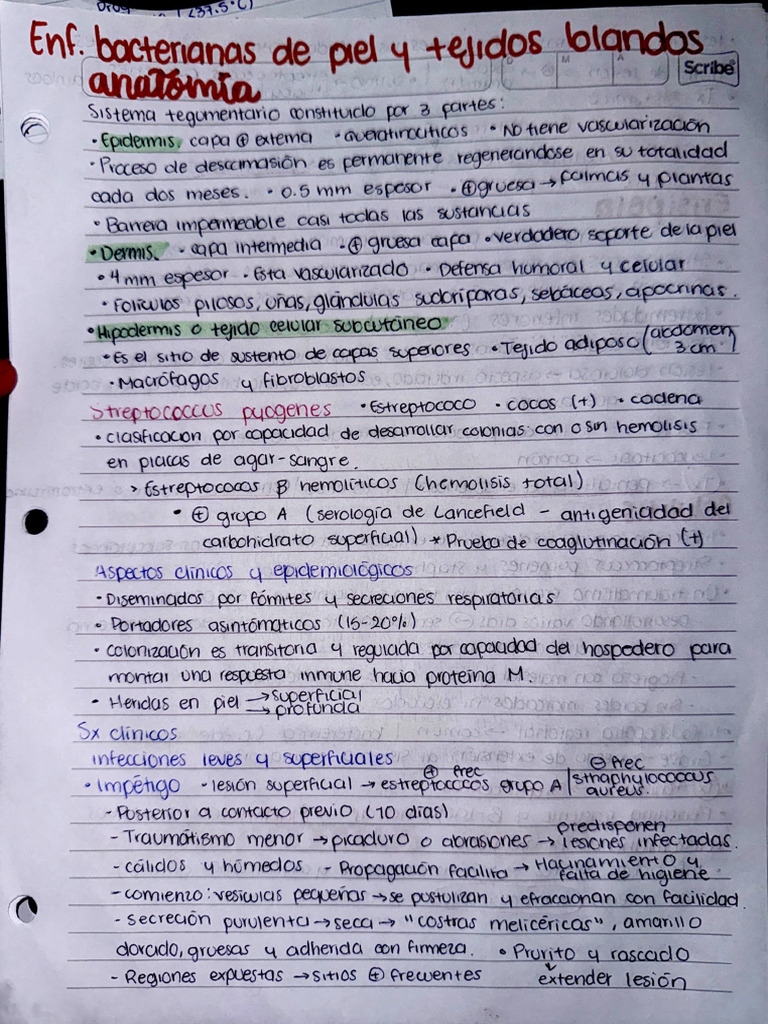 (37.5°C)
Enf. bacterianas de piel y tejidos blandos
Scribe
anatomía
Sistema tegumentario constituido por 3 partes:
• Epidermis, capa ⊕ externa • queratinocitos • No tiene vascularización
• Proceso de descamasión es permanente regenerandose en su totalidad
cada dos meses. • 0.5 mm espesor • ⊕ gruesa → palmas y plantas
• Barrera impermeable casi todas las sustancias
• Dermis. • capa intermedia • ⊕ gruesa capa • verdadero soporte de la piel
• 4 mm espesor • Esta vascularizado • Defensa humoral y celular
• Foliculos pilosos, uñas, glándulas sudoríparas, sebáceas, apocrinas.
• Hipodermis o tejido celular subcutáneo
• Es el sitio de sustento de capas superiores • Tejido adiposo (abdomen 3 cm)
• Macrófagos y fibroblastos
Streptococcus pyogenes • Estreptococo • cocos (+) • cadena
• clasificacion por capacidad de desarrollar colonias con o sin hemolisis
en placas de agar-sangre.
> Estreptococos β hemolíticos (hemolisis total)
• ⊕ grupo A (serología de Lancefield - antigenicidad del
carbohidrato superficial) * Prueba de coaglutinación (+)
Aspectos clínicos y epidemiológicos
• Diseminados por fómites y secreciones respiratorias
• Portadores asintómaticos (15-20%)
• colonización es transitoria y regulada por capacidad del hospedero para
montar una respuesta inmune hacia proteína M.
• Heridas en piel → superficial
→ profunda
Sx clínicos
infecciones leves y superficiales
• Impétigo • lesión superficial → estreptococos grupo A ⊕ frec | staphylococcus aureus. ⊖ frec
- Posterior a contacto previo (10 días)
- Traumatismo menor → picadura o abrasiones → predisponen lesiones infectadas.
- cálidos y húmedos - Propagación facilita → Hacinamiento y falta de higiene
- comienzo: vesículas pequeñas → se pustulizan y efraccionan con facilidad.
- secreción purulenta → seca → "costras melicéricas", amarillo
dorado, gruesas y adherida con firmeza. • Prurito y rascado
- Regiones expuestas → sitios ⊕ frewentes extender lesión